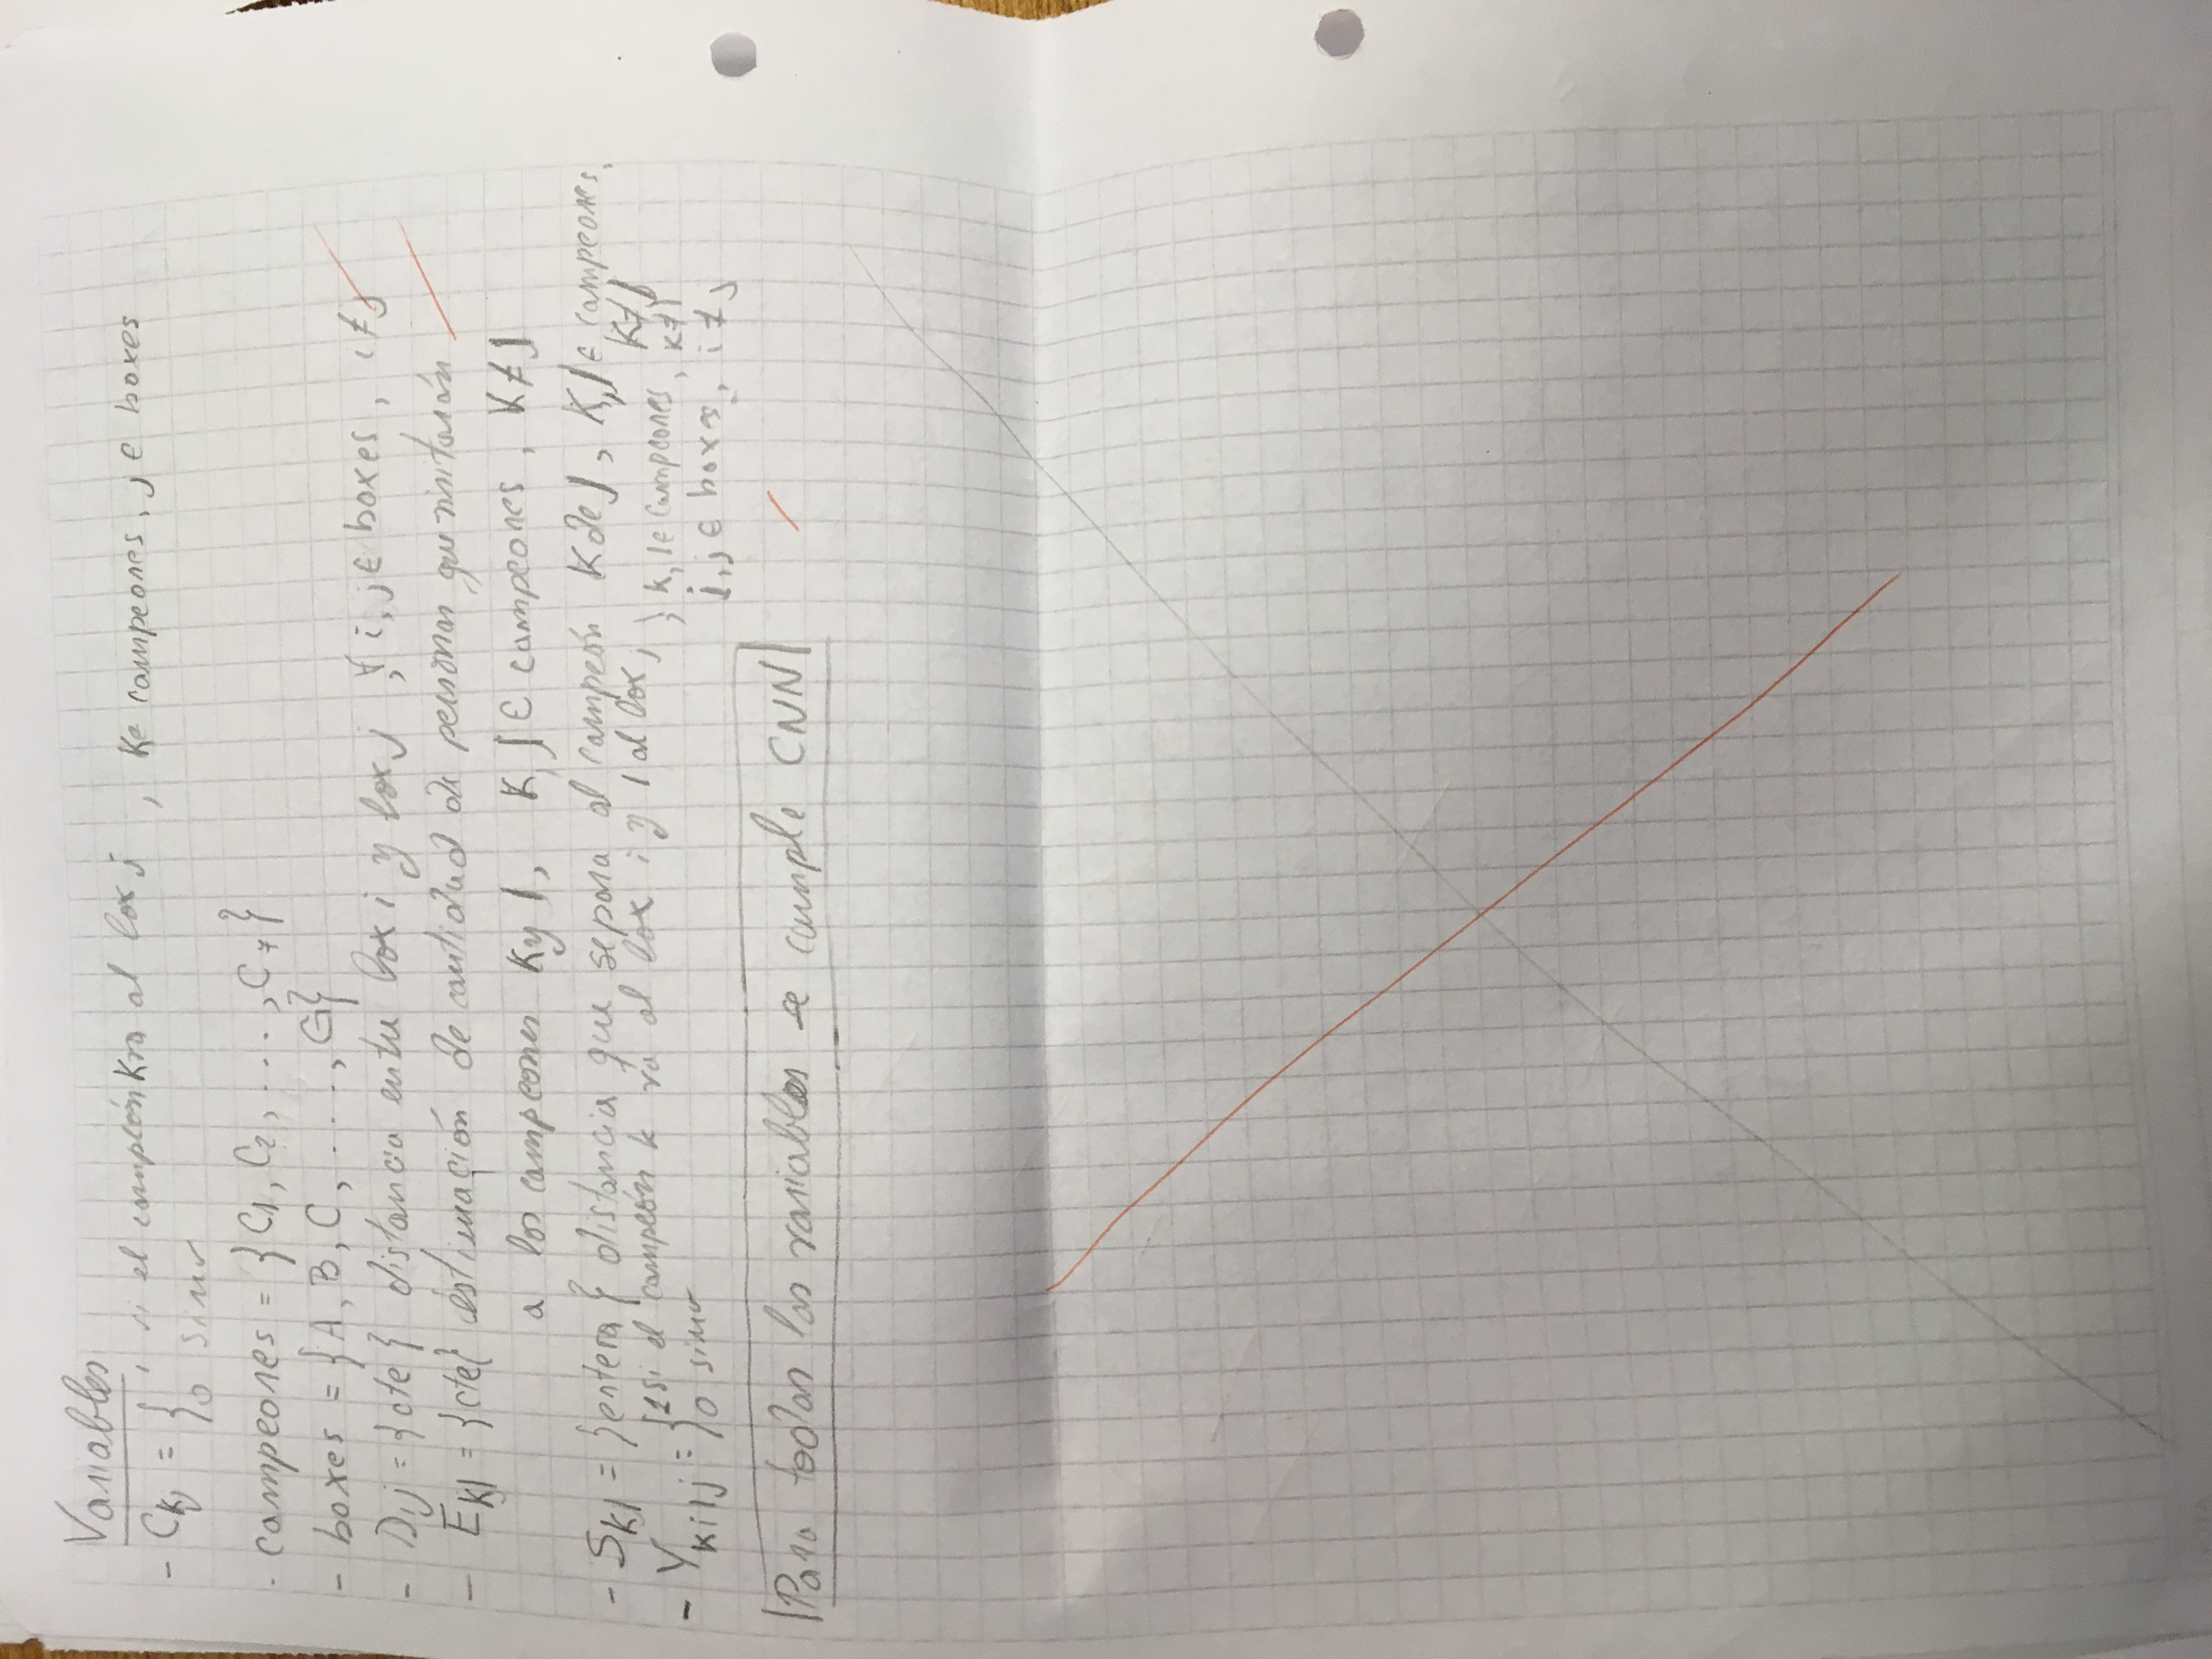 Variables
- Ckj = { 1 si el campeón k va al box j , k ∈ campeones, j ∈ boxes
{ 0 sino
- campeones = {C1, C2, ...., C7}
- boxes = {A, B, C, ...., G}
- Dij = {cte} distancia entre box i y box j , ∀ i, j ∈ boxes, i ≠ j
- Ekl = {cte} estimación de cantidad de personas que visitarán
a los campeones K y l, K, l ∈ campeones, K ≠ l
- Skl = {entera} distancia que separa al campeón K de l, K, l ∈ campeones,
K ≠ l
- Ykilj = { 1 si el campeón k va al box i y l al box j ; k, l ∈ campeones, k ≠ l
{ 0 sino i, j ∈ boxes, i ≠ j
Para todas las variables se cumple CNN